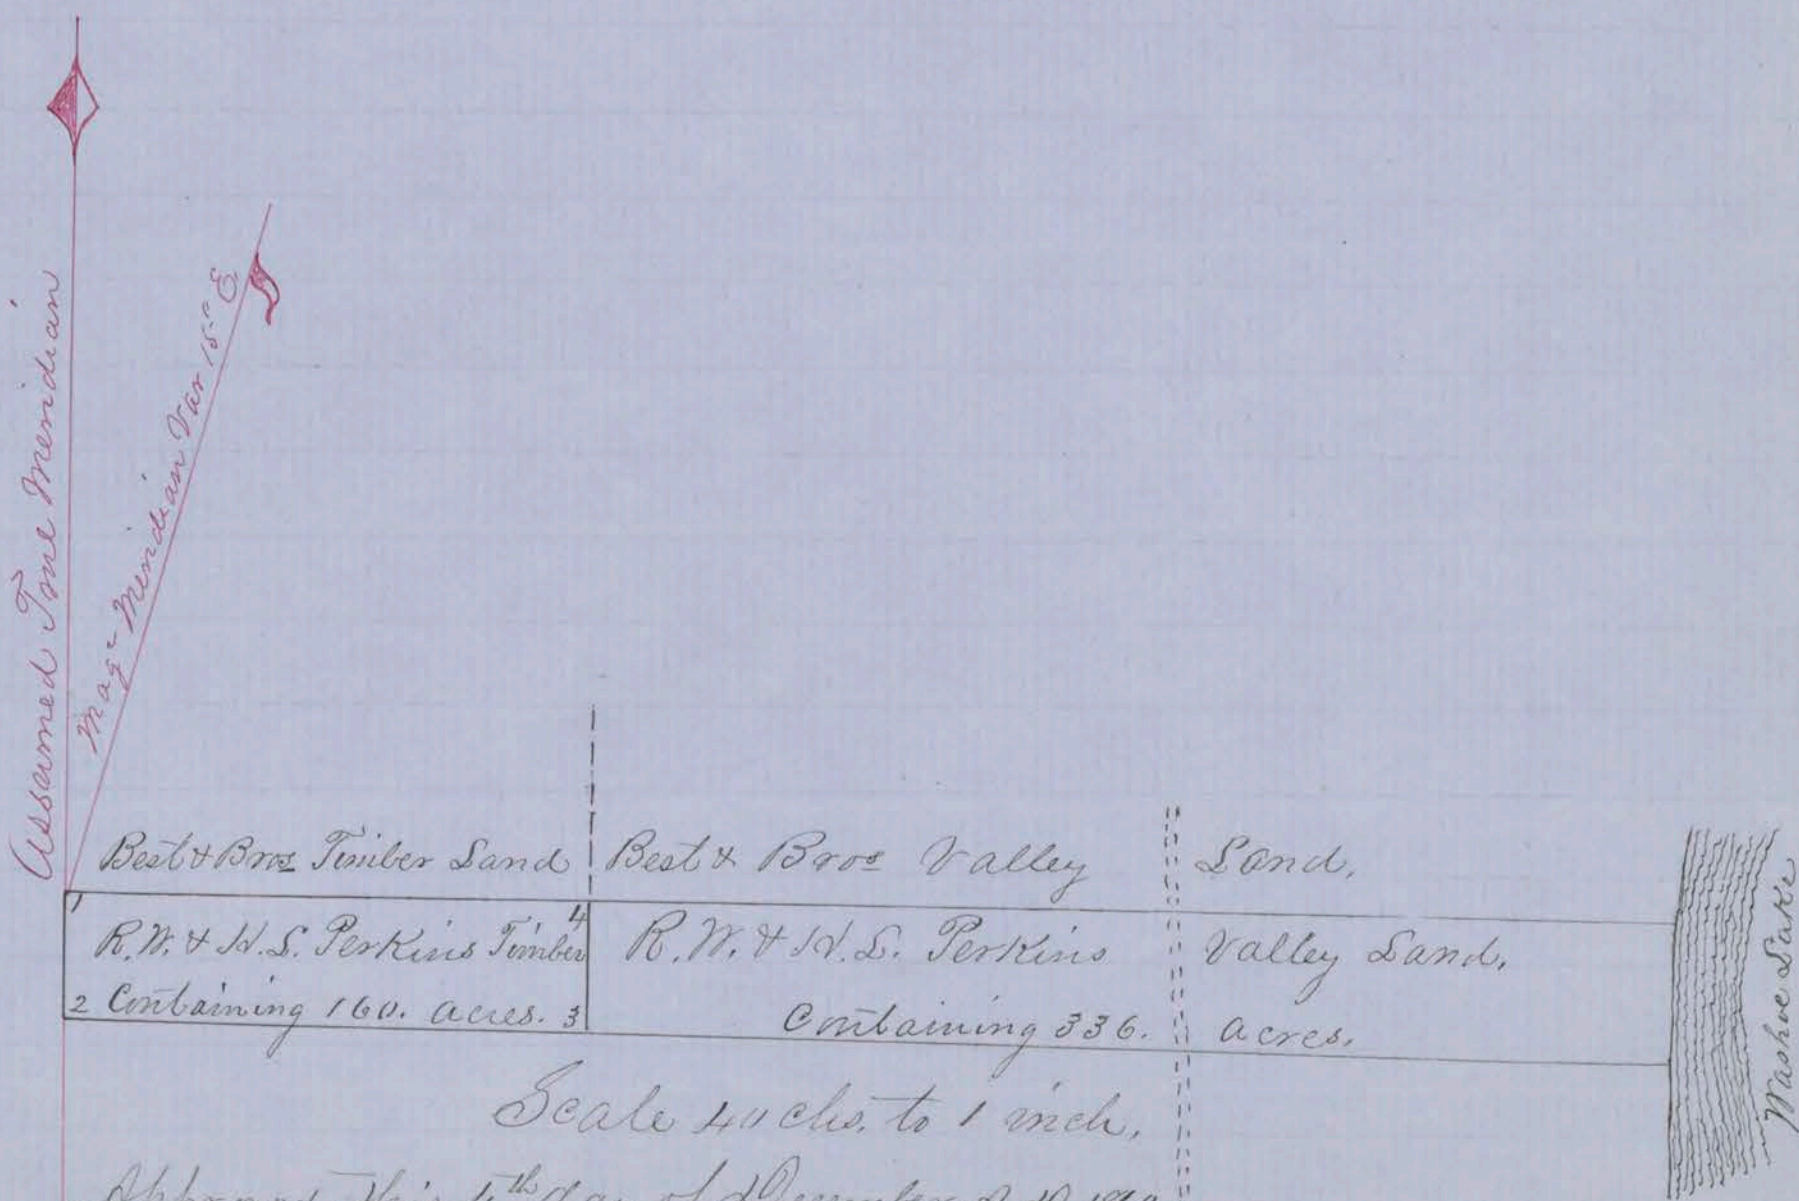 Assumed True Meridian
Magc Meridian Var. 15° E.
Best & Bros Timber Land
Best & Bros Valley Land,
1
4
R. W. & H. L. Perkins Timber
2 Containing 160. acres. 3
R. W. & H. L. Perkins Valley Land,
Containing 336. acres.
Washoe Lake
Scale 40 chs. to 1 inch,
this 5th day of December A. D.